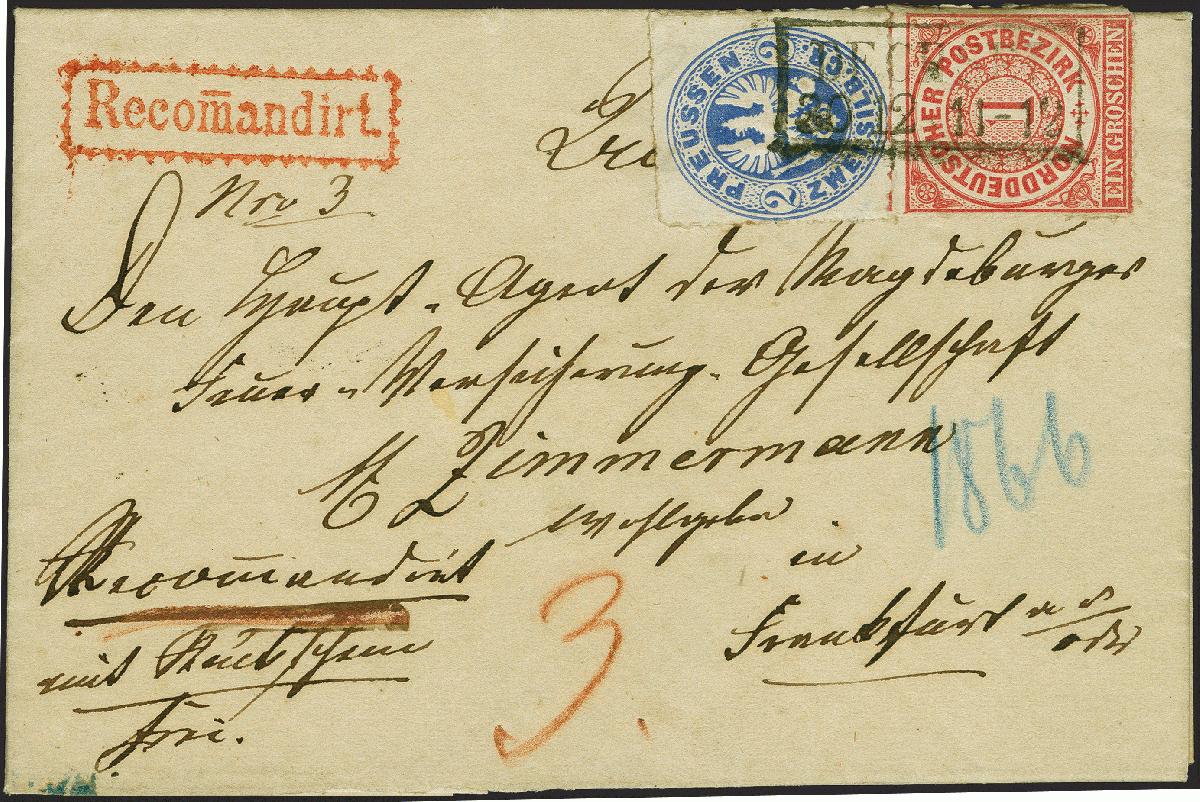 Recom̄andirt.
Nro 3
PREUSSEN
2 SILB.GR.
2
NORDDEUTSCHER POSTBEZIRK
1
EIN GROSCHEN
30 12 11-12
Den Haupt-Agent der Magdeburger
Feuer-Versicherung-Gesellschaft
Zimmermann
wohlgebor
in
Frankfurt a d
oder
1866
Recom̄andirt
mit Rückschein
frei.
3.